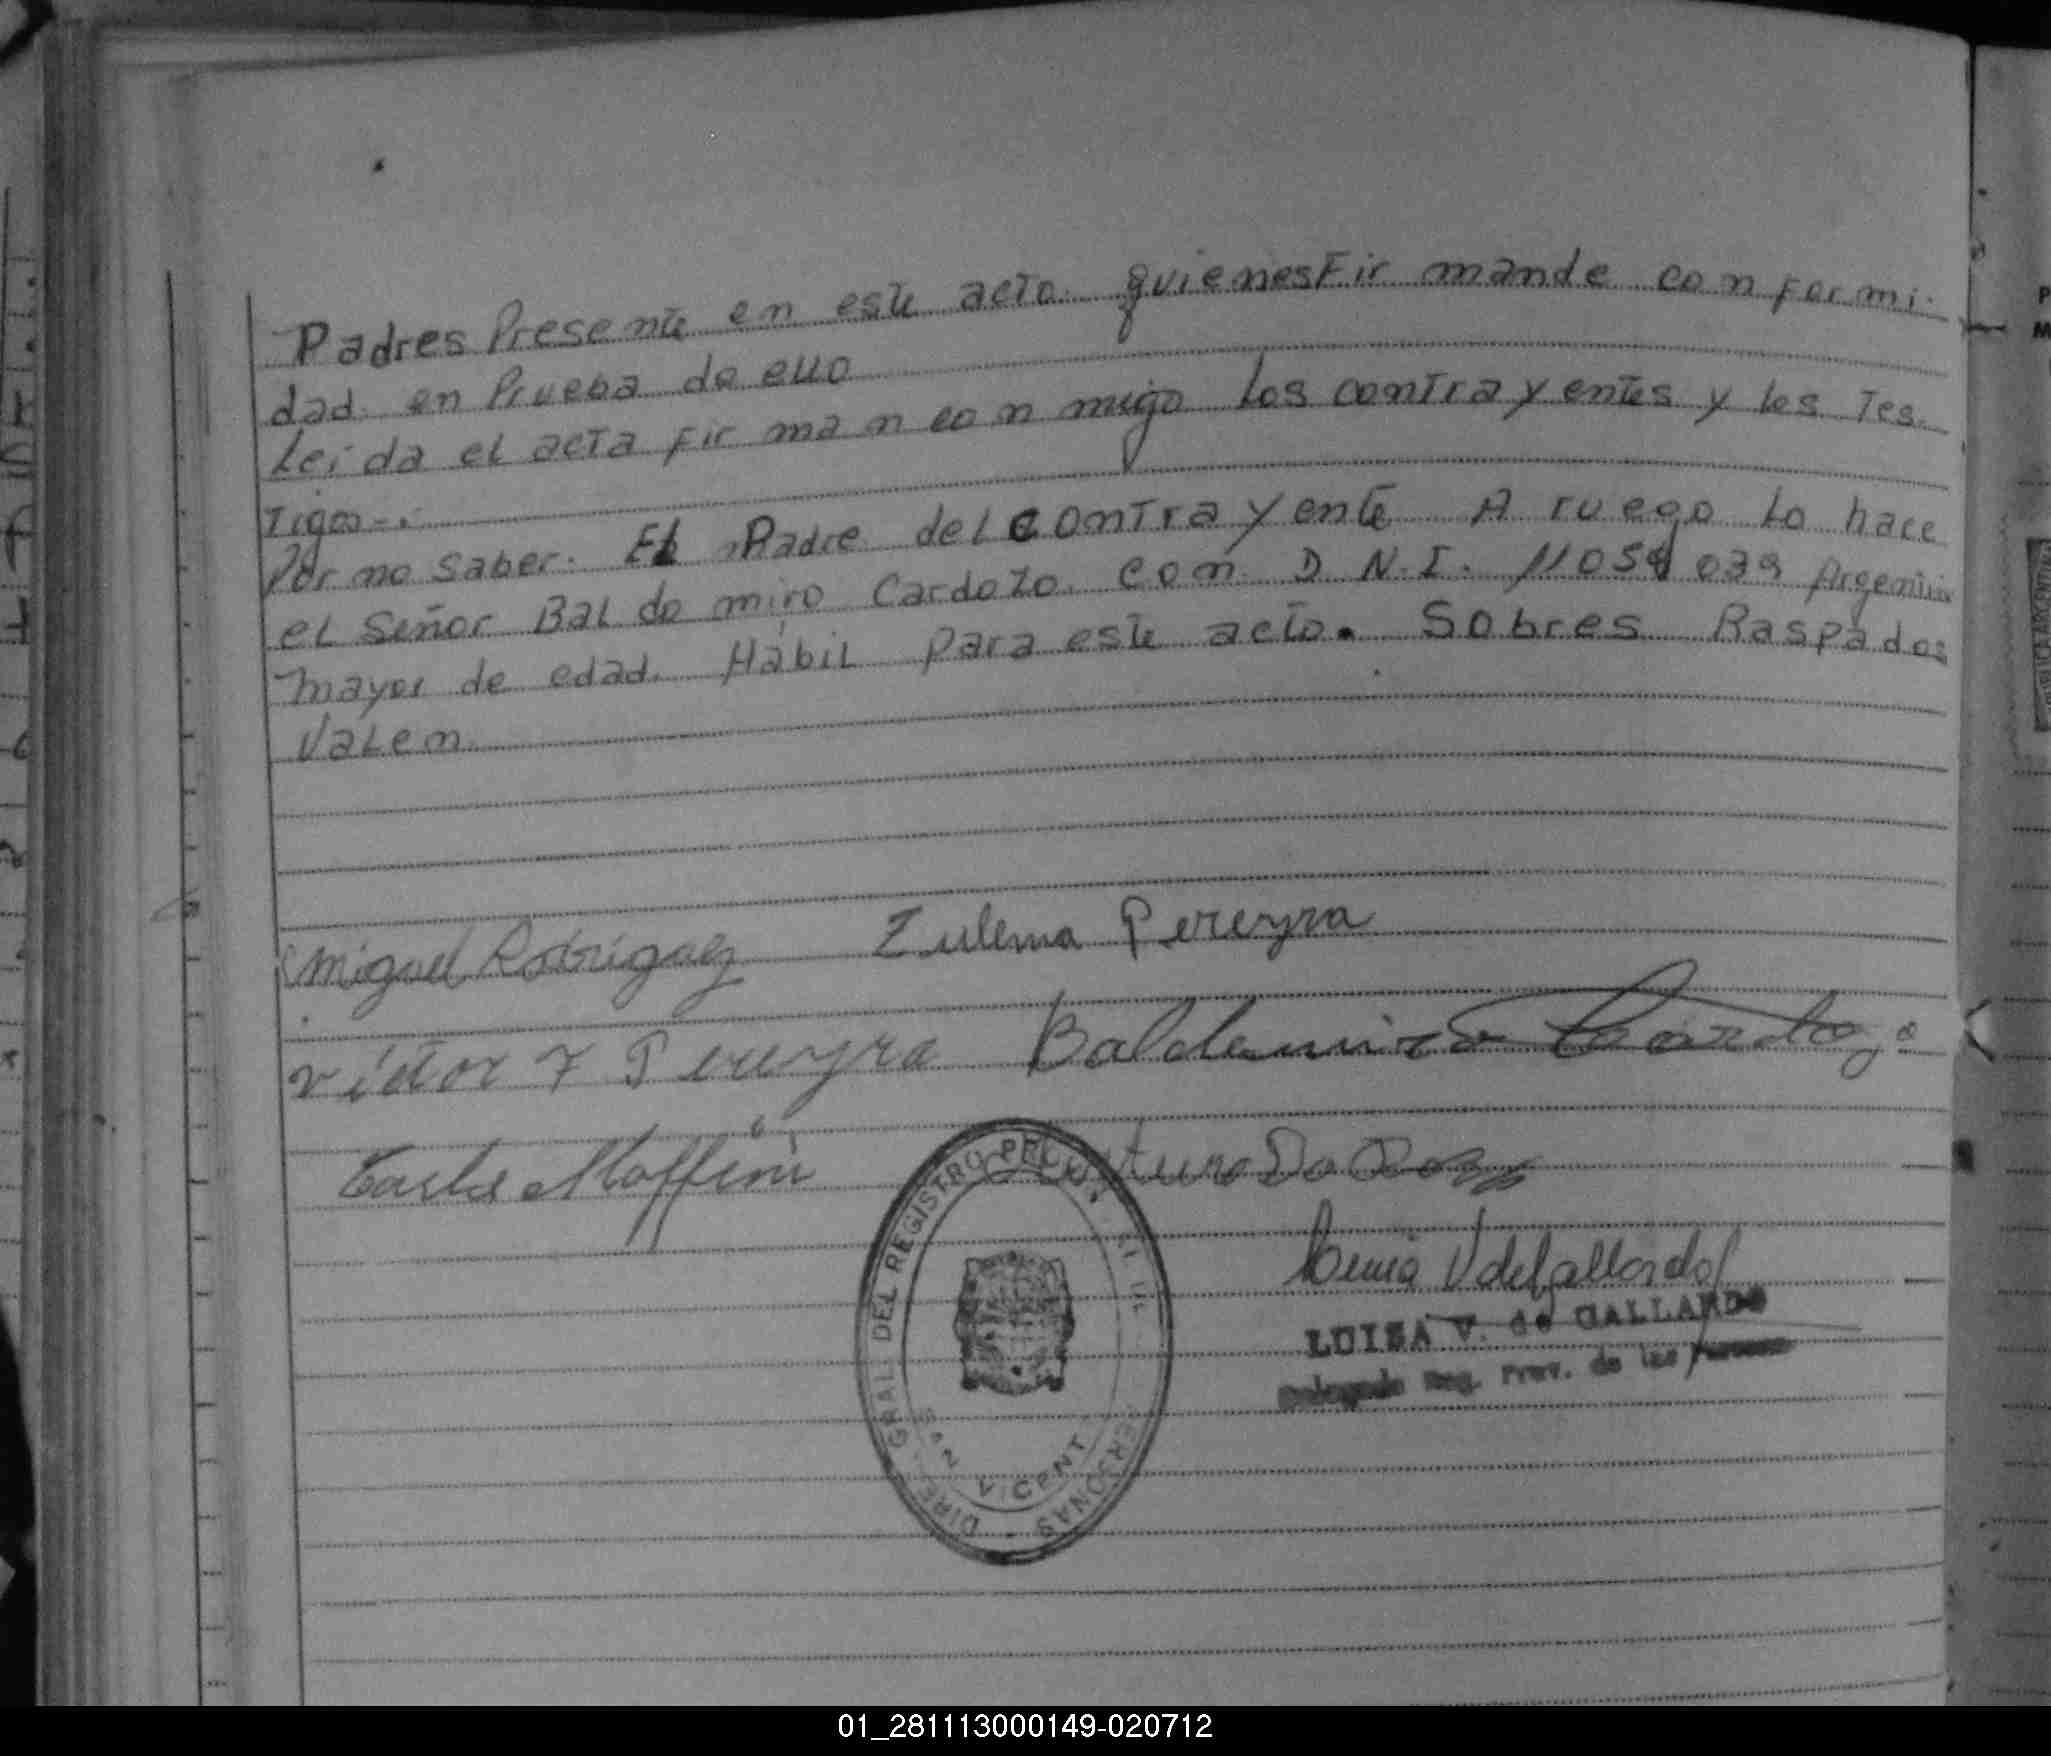 Padres Presente en este acto. quienes Fir man de con formi-
dad. en Prueba de ello
Leí da el acta fir man con migo los contrayentes y los Tes-
Tigos-.
Por no saber. El Padre del contrayente A ruego Lo hace
el Señor Bal do miro Cardozo. con D N.I. 11054 039 Argentino
mayor de edad. Hábil para este acto. Sobres Raspados
Valen
Miguel Rodriguez Zulema Pereyra
Victor F Pereyra Baldemiro Cardozo
Carlos Maffini
V de Gallardo
LUISA V. de GALLARDO
Delegado Reg. Prov. de las Personas
DIREC. GRAL. DEL REGISTRO PROV. CIVIL PERSONAS
SAN VICENTE
01_281113000149-020712